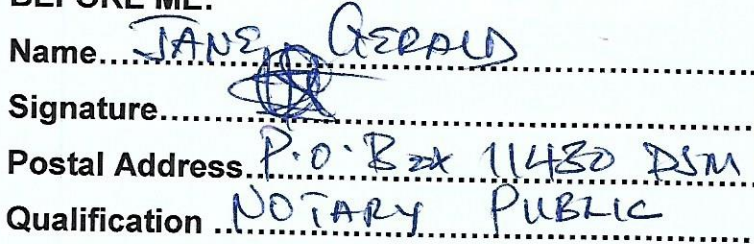 BEFORE ME:
Name... JANE GERALD
Signature...
Postal Address. P.O. Box 11480 DSM
Qualification ... NOTARY PUBLIC